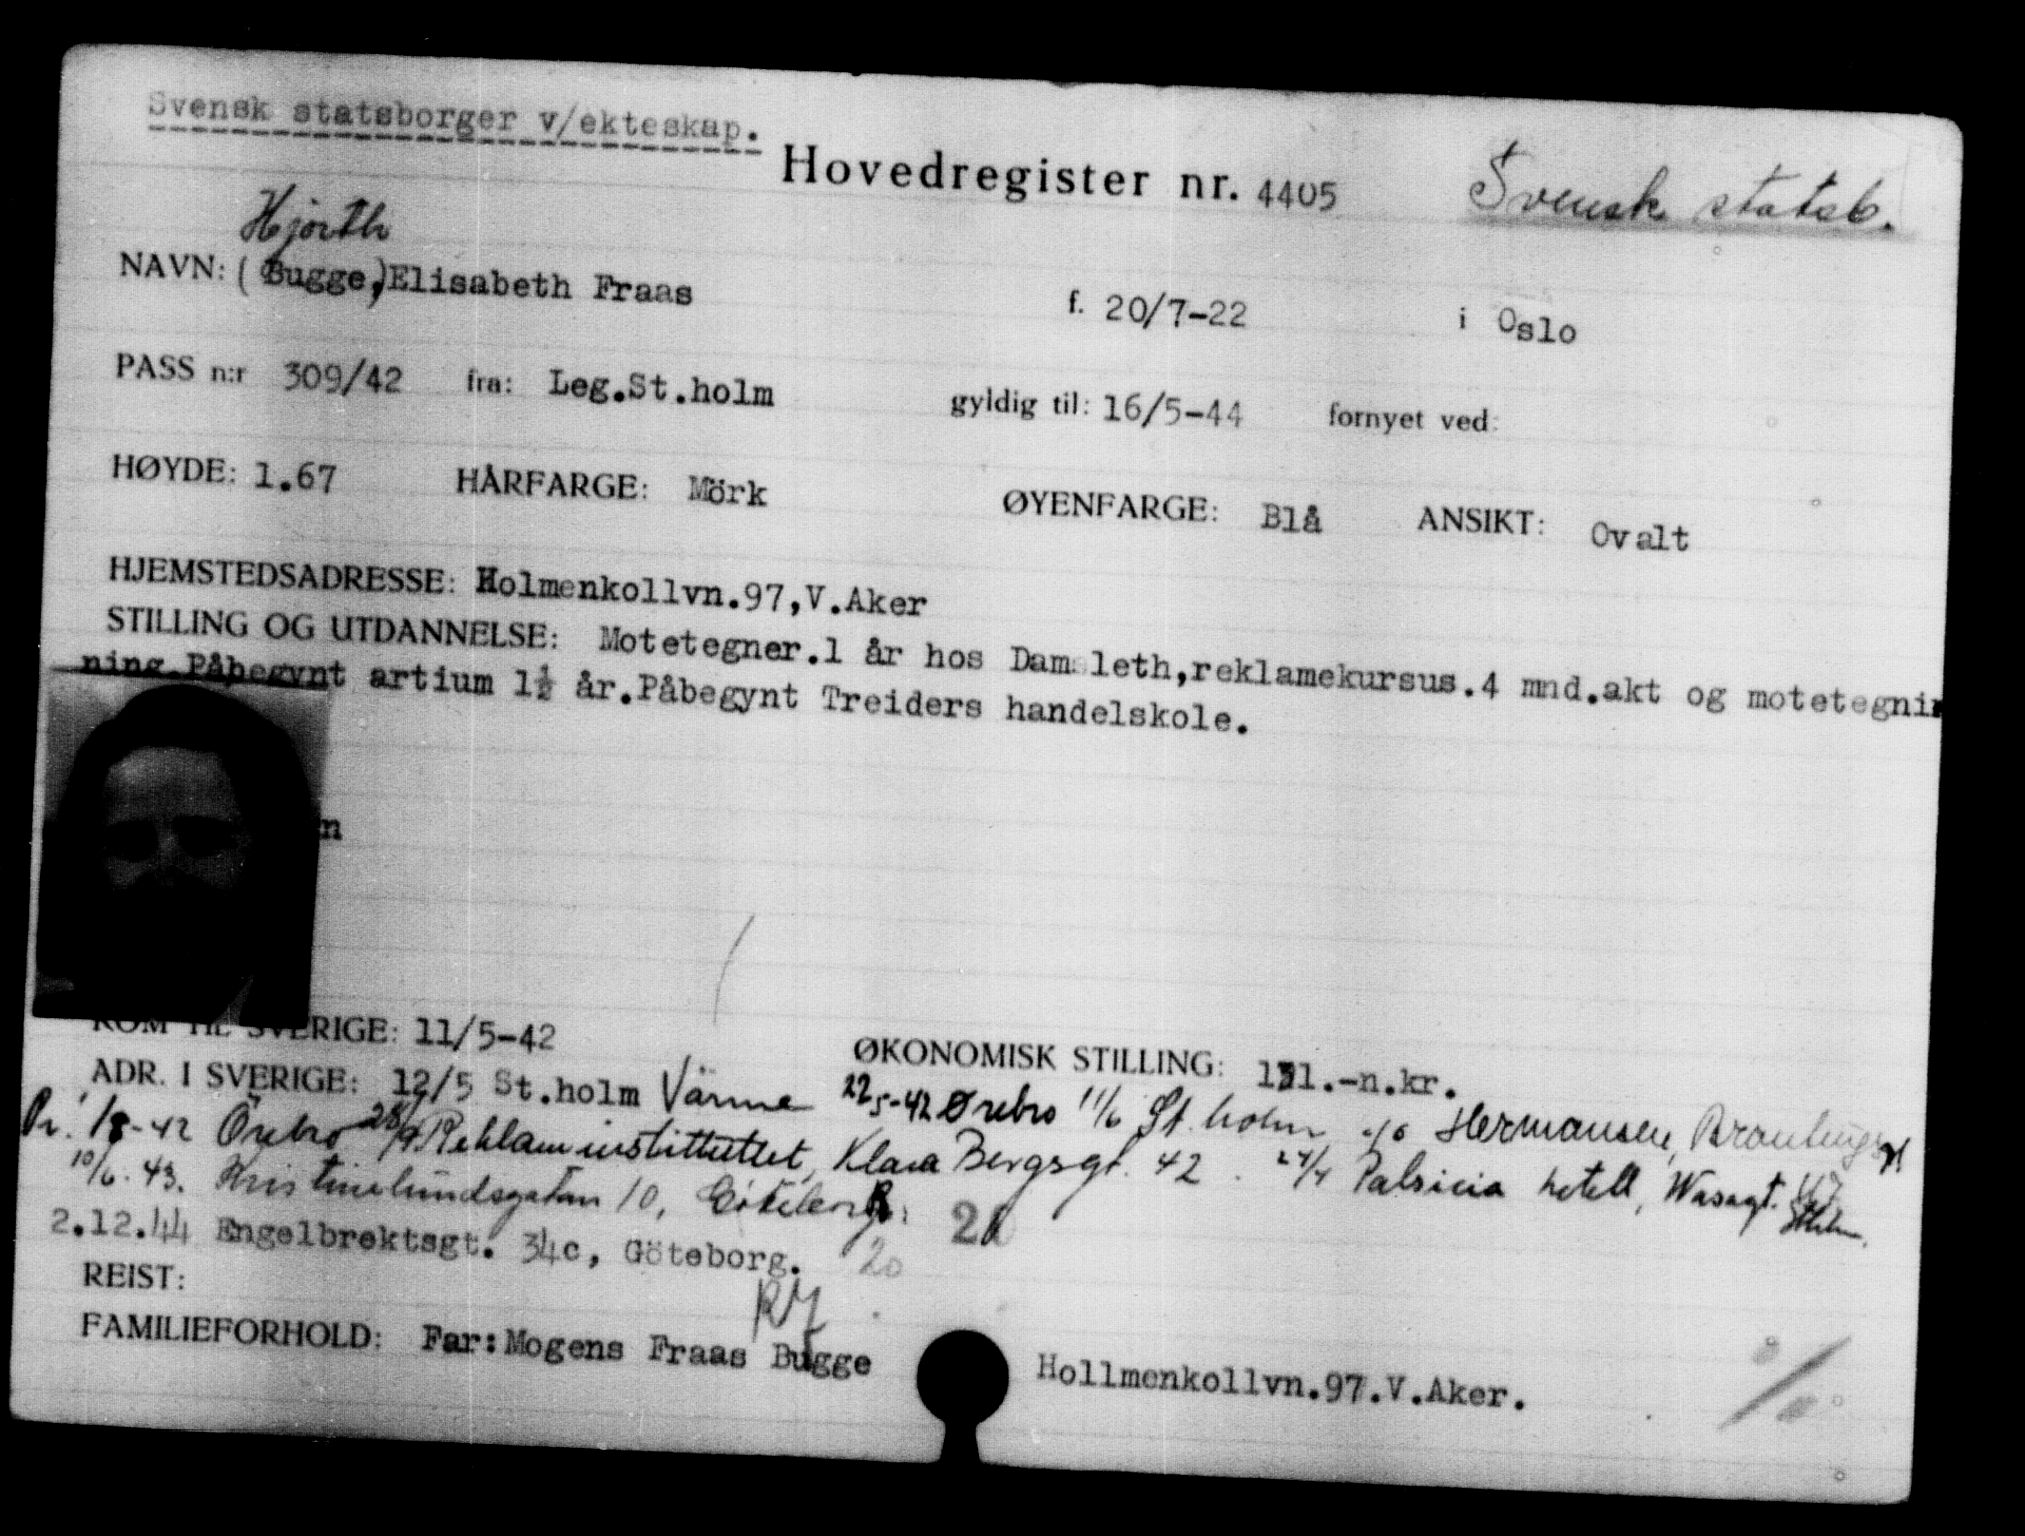 Svensk statsborger v/ekteskap.
Hovedregister nr. 4405
Svensk statsb.
Hjorth
NAVN: (Bugge,)Elisabeth Fraas f. 20/7-22 i Oslo
PASS n:r 309/42 fra: Leg.St.holm gyldig til: 16/5-44 fornyet ved:
HØYDE: 1.67 HÅRFARGE: Mörk ØYENFARGE: Blå ANSIKT: Ovalt
HJEMSTEDSADRESSE: Holmenkollvn.97,V.Aker
STILLING OG UTDANNELSE: Motetegner.1 år hos Damsleth,reklamekursus.4 mnd.akt og motetegnin
ning.Påbegynt artium 1½ år.Påbegynt Treiders handelskole.
n
KOM TIL SVERIGE: 11/5-42 ØKONOMISK STILLING: 131.-n.kr.
ADR. I SVERIGE: 12/5 St.holm 22/5-42 Ørebro 11/6 St. holm c/o Hermansen,
Pr. 1/8-42 Örebro 28/9 Reklaminstituttet, Klara Bergsgt. 42. 24/4 hotell, Wasagt.
10/6.43. Kristinelundsgatan 10, Göteborg.
2.12.44 Engelbrektsgt. 34c, Göteborg. 20
REIST:
FAMILIEFORHOLD: Far:Mogens Fraas Bugge Hollmenkollvn.97.V.Aker.